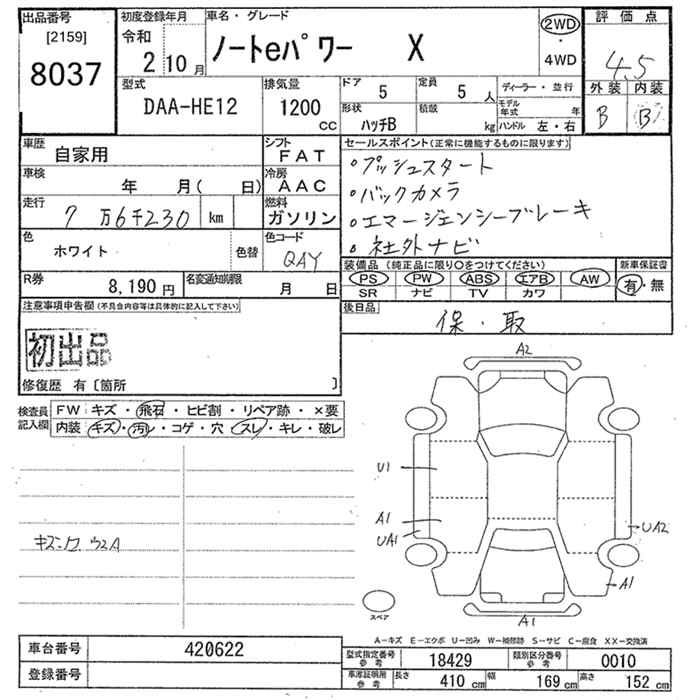 出品番号
[2159]
8037
初度登録年月
令和
2 10 月
車名・グレード
ノートeパワー X
2WD
・
4WD
評価点
4.5
外装 内装
B B
型式
DAA-HE12
排気量
1200
CC
ドア 5
定員 5 人
形状
ハッチB
積載
kg
ディーラー・並行
モデル年式 年
ハンドル 左・右
車歴
自家用
シフト
FAT
車検
年 月( 日)
冷房
AAC
走行
7 万6千230 km
燃料
ガソリン
色
ホワイト
色替
色コード
QAY
R券
8,190 円
名変通知期限
月 日
セールスポイント(正常に機能するものに限ります)
・プッシュスタート
・バックカメラ
・エマージェンシーブレーキ
・社外ナビ
装備品(純正品に限り○をつけてください)
PS PW ABS エアB AW
SR ナビ TV カワ
新車保証書
有・無
後日品
保・取
注意事項申告欄(不具合内容等は具体的に記入して下さい)
初出品
修復歴 有〔箇所 〕
検査員
記入欄
FW キズ・飛石・ヒビ割・リペア跡・×要
内装 キズ・汚レ・コゲ・穴・スレ・キレ・破レ
A2
U1
A1
UA1
UA2
A1
A1
スペア
A-キズ E-エクボ U-凹み W-補修跡 S-サビ C-腐食 XX-交換済
車台番号
420622
登録番号
型式指定番号
参考
18429
類別区分番号
参考
0010
車庫証明用
参考
長さ 410 cm
幅 169 cm
高さ 152 cm